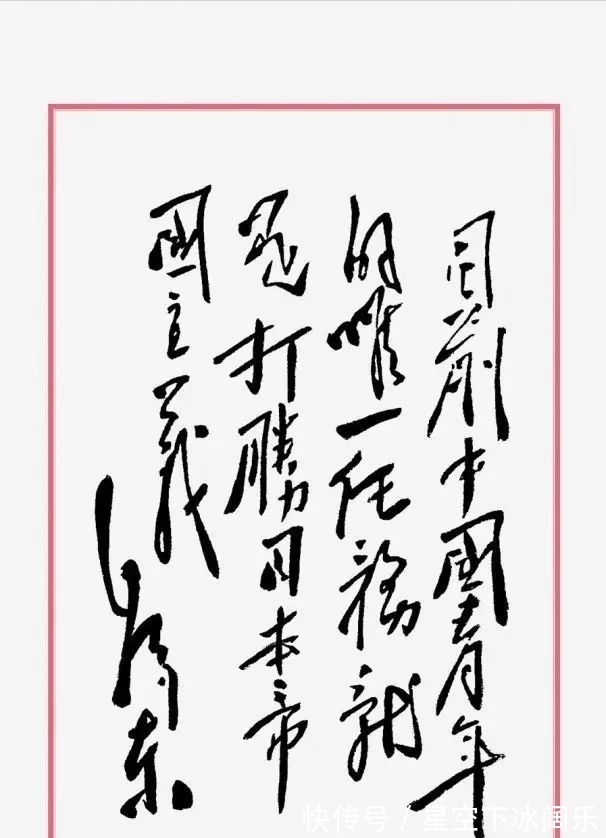 目前中國青年
的唯一任務就
是打勝日本帝
國主義
毛澤東
快传号 / 星空下冰阔乐